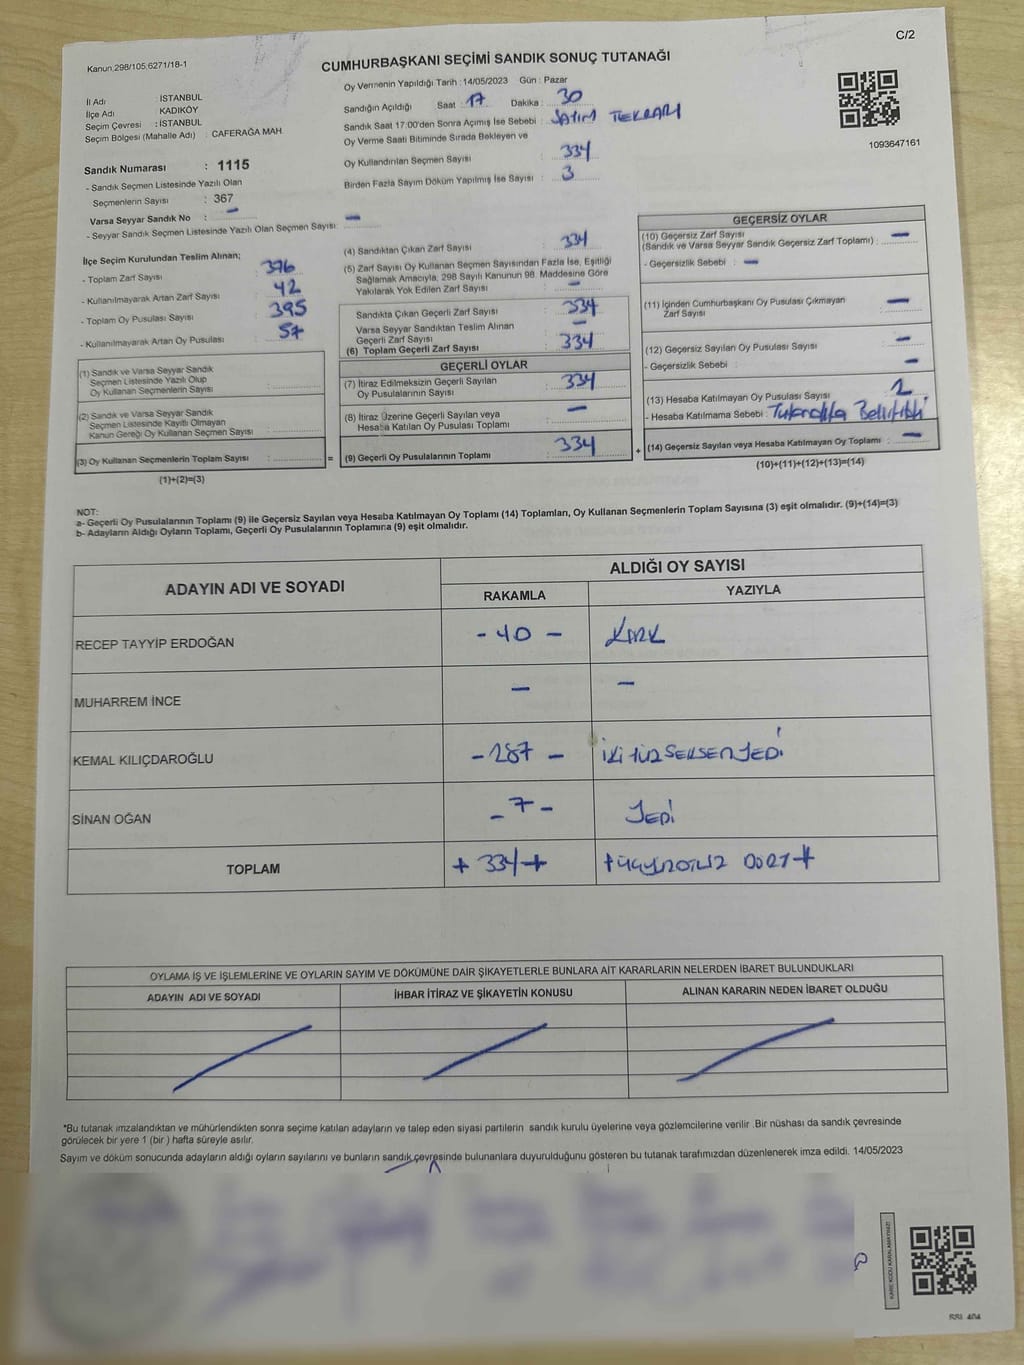 C/2
Kanun,298/105,6271/18-1
CUMHURBAŞKANI SEÇİMİ SANDIK SONUÇ TUTANAĞI
Oy Vermenin Yapıldığı Tarih : 14/05/2023 Gün : Pazar
İl Adı : İSTANBUL
İlçe Adı : KADIKÖY
Seçim Çevresi : İSTANBUL
Seçim Bölgesi (Mahalle Adı) : CAFERAĞA MAH.
Sandığın Açıldığı Saat : 17 Dakika : 30
Sandık Saat 17:00'den Sonra Açımış İse Sebebi : SAYIM TEKRARI
Oy Verme Saati Bitiminde Sırada Bekleyen ve
Oy Kullandırılan Seçmen Sayısı : 334
Birden Fazla Sayım Döküm Yapılmış İse Sayısı : 3
1093647161
Sandık Numarası : 1115
- Sandık Seçmen Listesinde Yazılı Olan
Seçmenlerin Sayısı : 367
Varsa Seyyar Sandık No : -
- Seyyar Sandık Seçmen Listesinde Yazılı Olan Seçmen Sayısı : -
İlçe Seçim Kurulundan Teslim Alınan;
- Toplam Zarf Sayısı : 376
- Kullanılmayarak Artan Zarf Sayısı : 42
- Toplam Oy Pusulası Sayısı : 395
- Kullanılmayarak Artan Oy Pusulası : 57
(1) Sandık ve Varsa Seyyar Sandık
Seçmen Listesinde Yazılı Olup
Oy Kullanan Seçmenlerin Sayısı :
(2) Sandık ve Varsa Seyyar Sandık
Seçmen Listesinde Kayıtlı Olmayan
Kanun Gereği Oy Kullanan Seçmen Sayısı :
(3) Oy Kullanan Seçmenlerin Toplam Sayısı :
(1)+(2)=(3)
(4) Sandıktan Çıkan Zarf Sayısı : 334
(5) Zarf Sayısı Oy Kullanan Seçmen Sayısından Fazla İse, Eşitliği
Sağlamak Amacıyla, 298 Sayılı Kanunun 98. Maddesine Göre
Yakılarak Yok Edilen Zarf Sayısı : -
Sandıkta Çıkan Geçerli Zarf Sayısı : 334
Varsa Seyyar Sandıktan Teslim Alınan
Geçerli Zarf Sayısı : -
(6) Toplam Geçerli Zarf Sayısı : 334
GEÇERLİ OYLAR
(7) İtiraz Edilmeksizin Geçerli Sayılan
Oy Pusulasının Sayısı : 334
(8) İtiraz Üzerine Geçerli Sayılan veya
Hesaba Katılan Oy Pusulası Toplamı : -
= (9) Geçerli Oy Pusulalarının Toplamı : 334 +
GEÇERSİZ OYLAR
(10) Geçersiz Zarf Sayısı
(Sandık ve Varsa Seyyar Sandık Geçersiz Zarf Toplamı) : -
- Geçersizlik Sebebi : -
(11) İçinden Cumhurbaşkanı Oy Pusulası Çıkmayan
Zarf Sayısı : -
(12) Geçersiz Sayılan Oy Pusulası Sayısı : -
- Geçersizlik Sebebi : -
(13) Hesaba Katılmayan Oy Pusulası Sayısı :
- Hesaba Katılmama Sebebi : Tutanakta Belirtildi
(14) Geçersiz Sayılan veya Hesaba Katılmayan Oy Toplamı : -
(10)+(11)+(12)+(13)=(14)
NOT:
a- Geçerli Oy Pusulalarının Toplamı (9) ile Geçersiz Sayılan veya Hesaba Katılmayan Oy Toplamı (14) Toplamları, Oy Kullanan Seçmenlerin Toplam Sayısına (3) eşit olmalıdır. (9)+(14)=(3)
b- Adayların Aldığı Oyların Toplamı, Geçerli Oy Pusulalarının Toplamına (9) eşit olmalıdır.
ADAYIN ADI VE SOYADI ALDIĞI OY SAYISI
RAKAMLA YAZIYLA
RECEP TAYYİP ERDOĞAN - 40 - KIRK
MUHARREM İNCE - -
KEMAL KILIÇDAROĞLU - 287 - İKİ YÜZ SEKSEN YEDİ
SİNAN OĞAN - 7 - YEDİ
TOPLAM + 334 + + ÜÇYÜZOTUZ DÖRT +
OYLAMA İŞ VE İŞLEMLERİNE VE OYLARIN SAYIM VE DÖKÜMÜNE DAİR ŞİKAYETLERLE BUNLARA AİT KARARLARIN NELERDEN İBARET BULUNDUKLARI
ADAYIN ADI VE SOYADI İHBAR İTİRAZ VE ŞİKAYETİN KONUSU ALINAN KARARIN NEDEN İBARET OLDUĞU
*Bu tutanak imzalandıktan ve mühürlendikten sonra seçime katılan adayların ve talep eden siyasi partilerin sandık kurulu üyelerine veya gözlemcilerine verilir .Bir nüshası da sandık çevresinde
görülecek bir yere 1 (bir ) hafta süreyle asılır.
Sayım ve döküm sonucunda adayların aldığı oyların sayılarını ve bunların sandık çevresinde bulunanlara duyurulduğunu gösteren bu tutanak tarafımızdan düzenlenerek imza edildi. 14/05/2023
KARE KODU KARALAMAYINIZ!